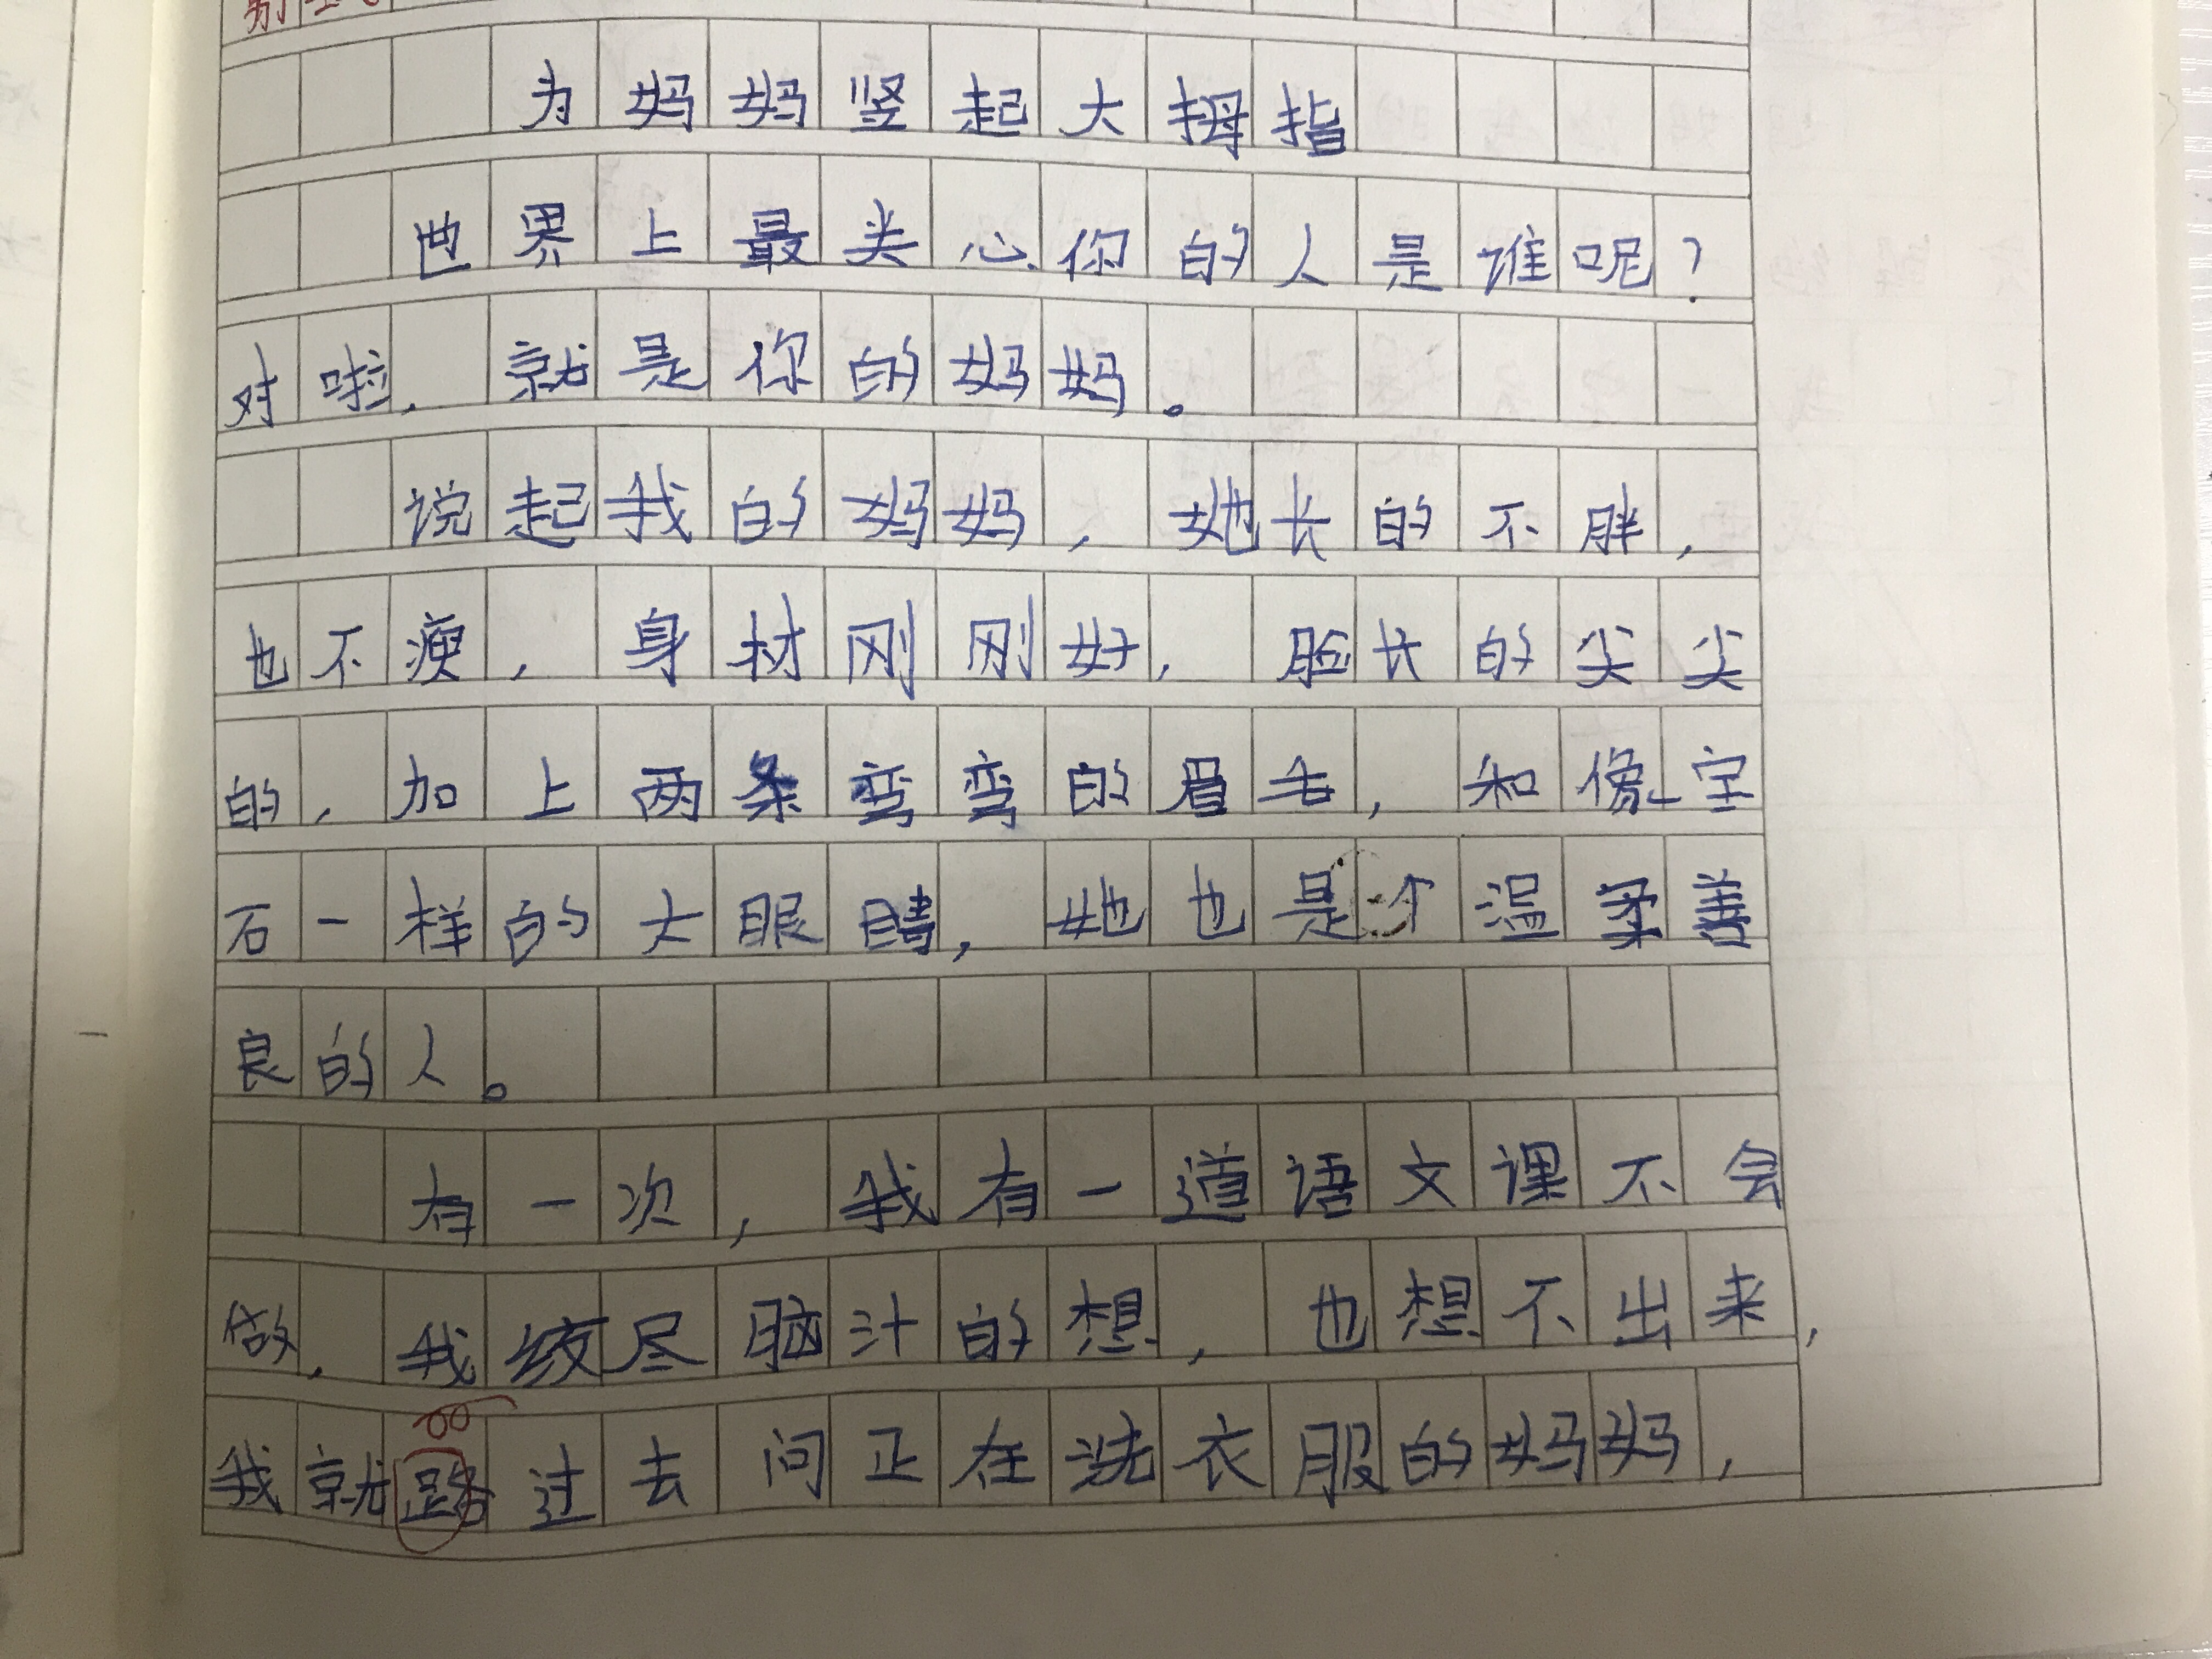 为妈妈竖起大拇指
世界上最关心你的人是谁呢？
对啦，就是你的妈妈。
说起我的妈妈，她长的不胖，
也不瘦，身材刚刚好，脸长的尖尖
的，加上两条弯弯的眉毛，和像宝
石一样的大眼睛，她也是一个温柔善
良的人。
有一次，我有一道语文课不会
做，我绞尽脑汁的想，也想不出来，
我就路过去问正在洗衣服的妈妈，